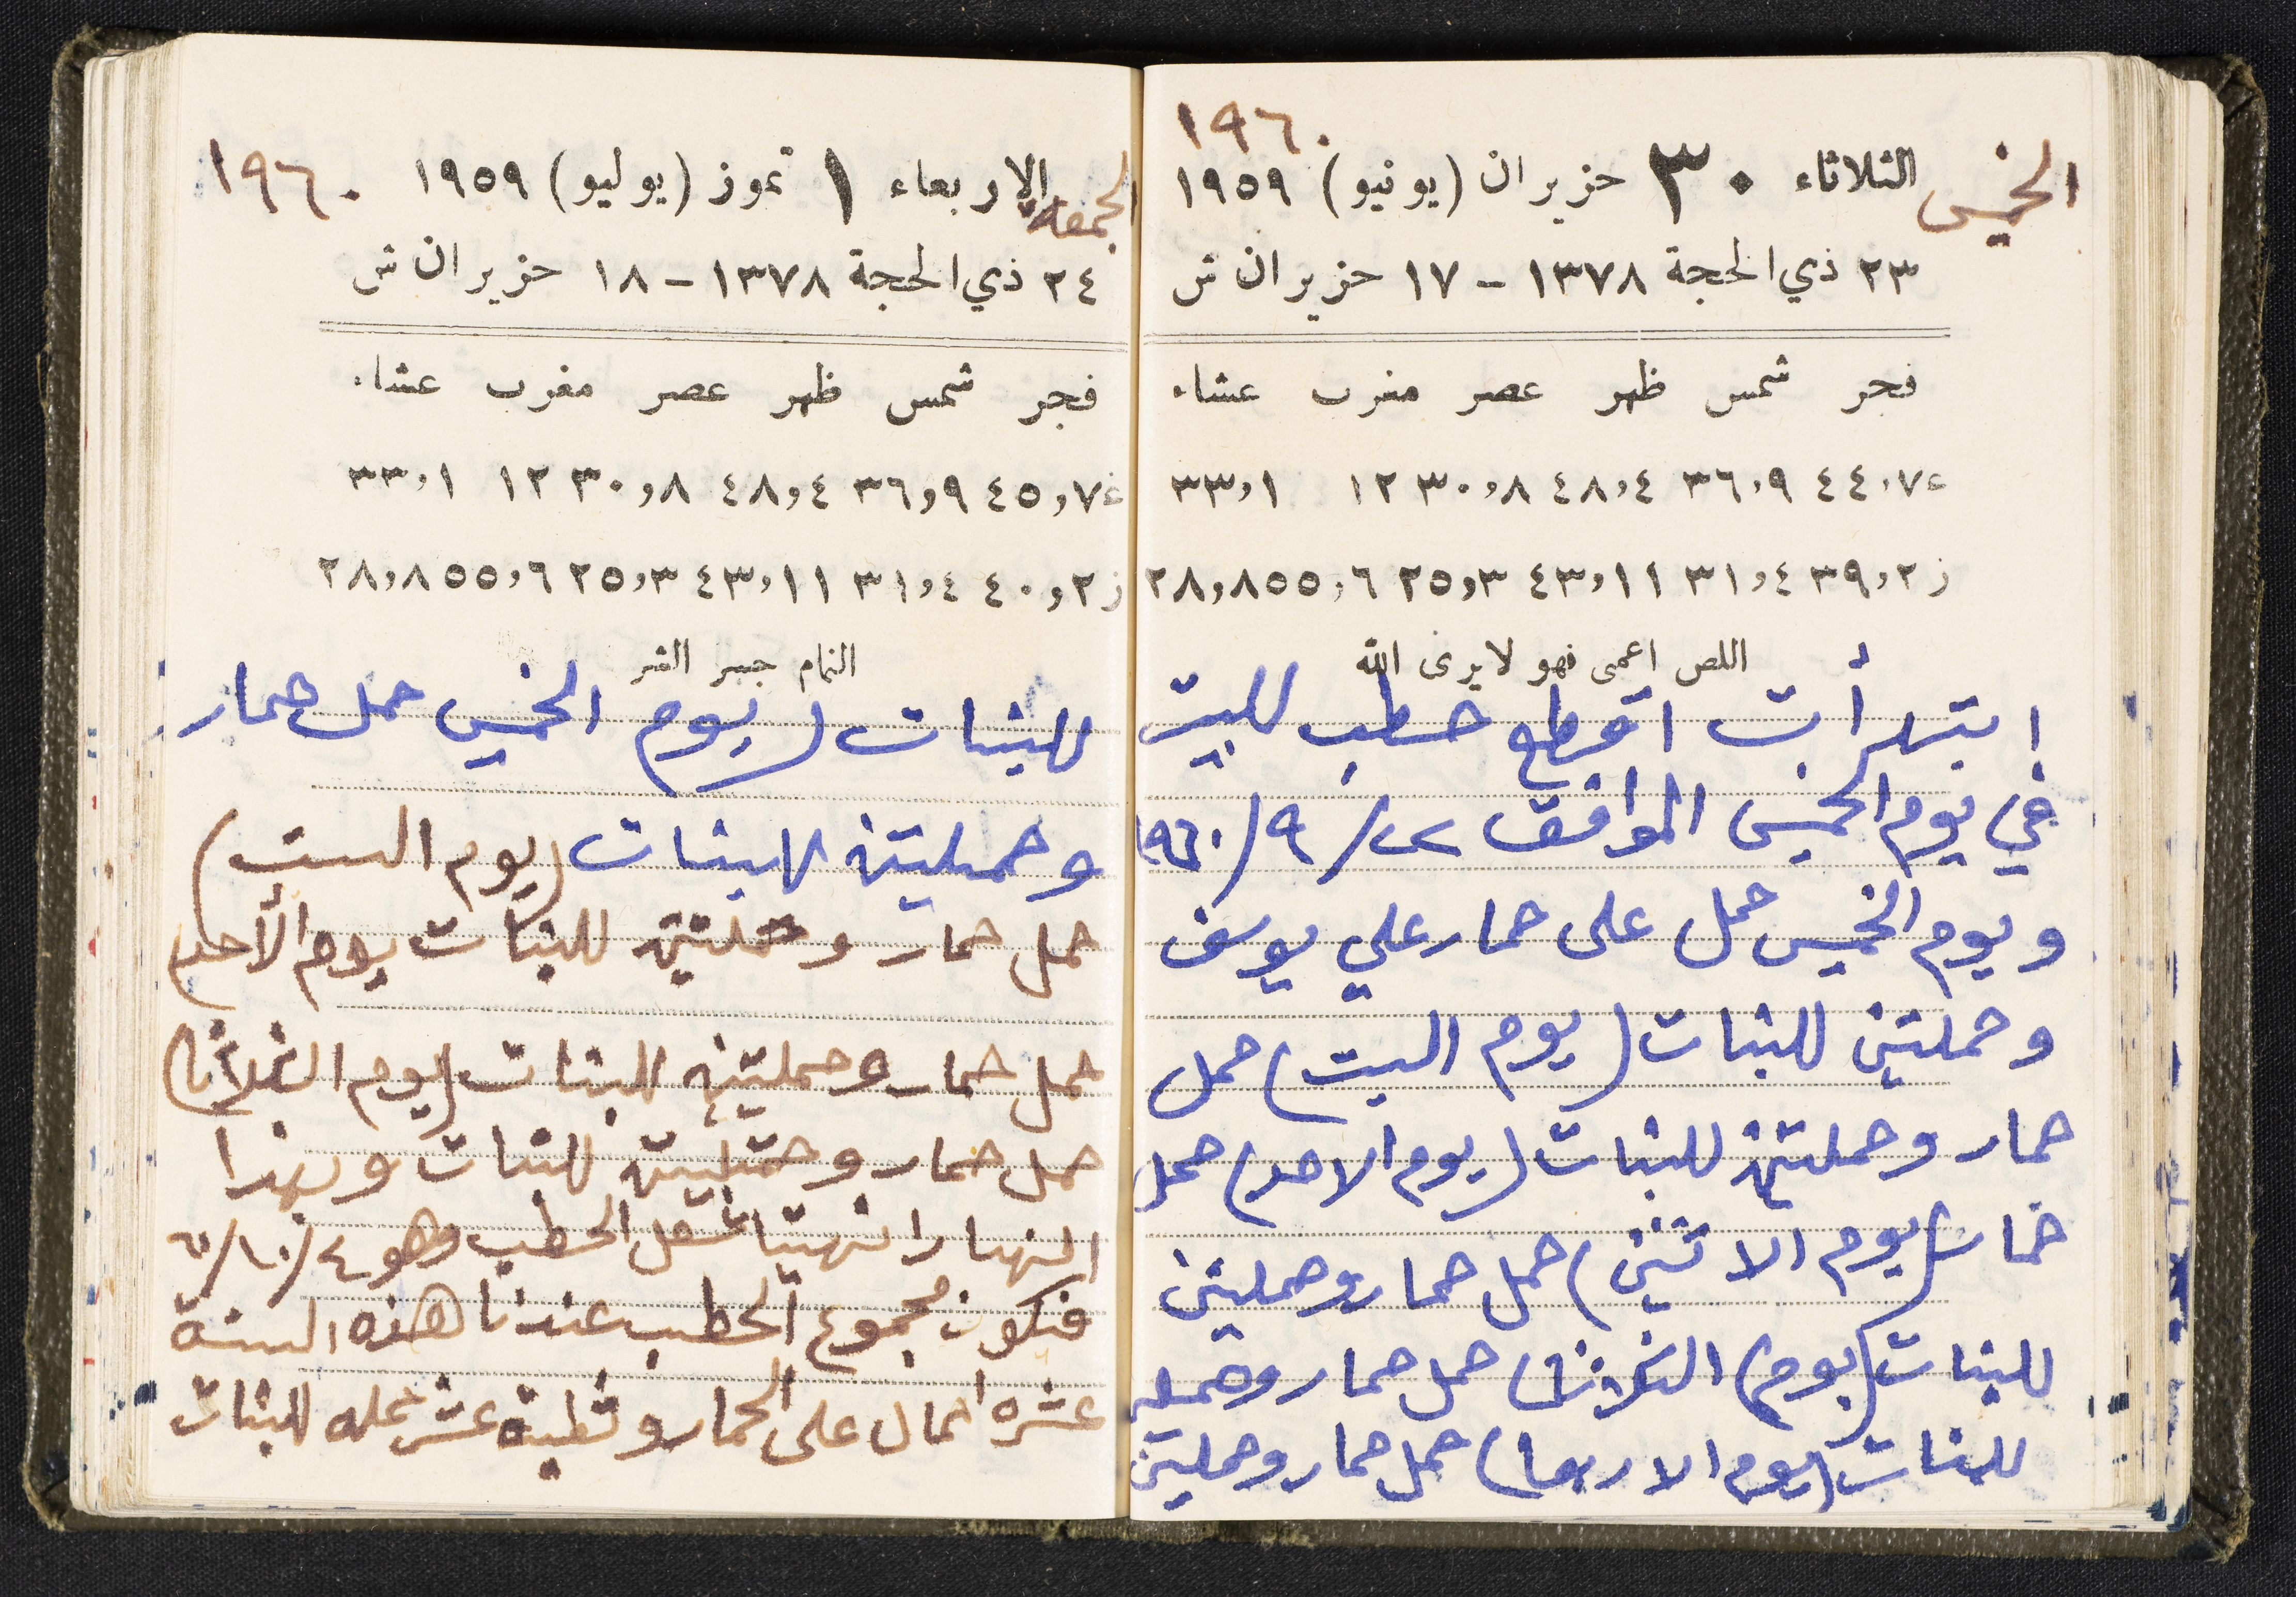 ١٩٦٠
الخميس الثلاثاء ٣٠ حزيران (يونيو) ١٩٥٩
٢٣ ذي الحجة ١٣٧٨ - ١٧ حزيران ش
فجر شمس ظهر عصر مغرب عشاء
ع ٤٤،٧ ٣٦،٩ ٤٨،٤ ٣٠،٨ ١٢ ٣٣،١
ز ٣٩،٢ ٣١،٤ ٤٣،١١ ٢٥،٣ ٥٥،٦ ٢٨،٨
اللص اعمى فهو لا يرى الله
ابتدأت اقطع حطب للبيت
في يوم الخميس الموافق ٢٢/٩/١٩٦٠
ويوم الخميس حمل على حمار علي يوسف
وحملتين للبنات (يوم السبت) حمل
حمار وحملتين للبنات (يوم الاحد) حمل
حمار (يوم الاثنين) حمل حمار وحملتين
للبنات (يوم) الثلاثا) حمل حمار وحملتين
للبنات (يوم الاربعا) حمل حمار وحملتين
الجمعه الاربعاء ١ تموز (يوليو) ١٩٥٩ ١٩٦٠
٢٤ ذي الحجة ١٣٧٨ - ١٨ حزيران ش
فجر شمس ظهر عصر مغرب عشاء
ع ٤٥،٧ ٣٦،٩ ٤٨،٤ ٣٠،٨ ١٢ ٣٣،١
ز ٤٠،٢ ٣١،٤ ٤٣،١١ ٢٥،٣ ٥٥،٦ ٢٨،٨
النمام جسر الشر
للبنات (يوم الخميس حمل حمار
وحملتين للبنات (يوم السبت)
حمل حمار وحملتين للبنات يوم الأحد)
حمل حمار وحملتين للبنات (يوم الثلاثا)
حمل حمار وحملتين للبنات وبهذا
النهار انتهينا شغل الحطب وهو ٤/١٠/٦٠
فتكون مجموع الحطب عندنا هذه السنة
عشره احمال على الحمار و عشر حمله للبنات